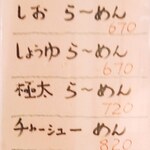 しお ら〜めん
670
しょうゆ ら〜めん
670
極太 ら〜めん
720
チャーシュー めん
820